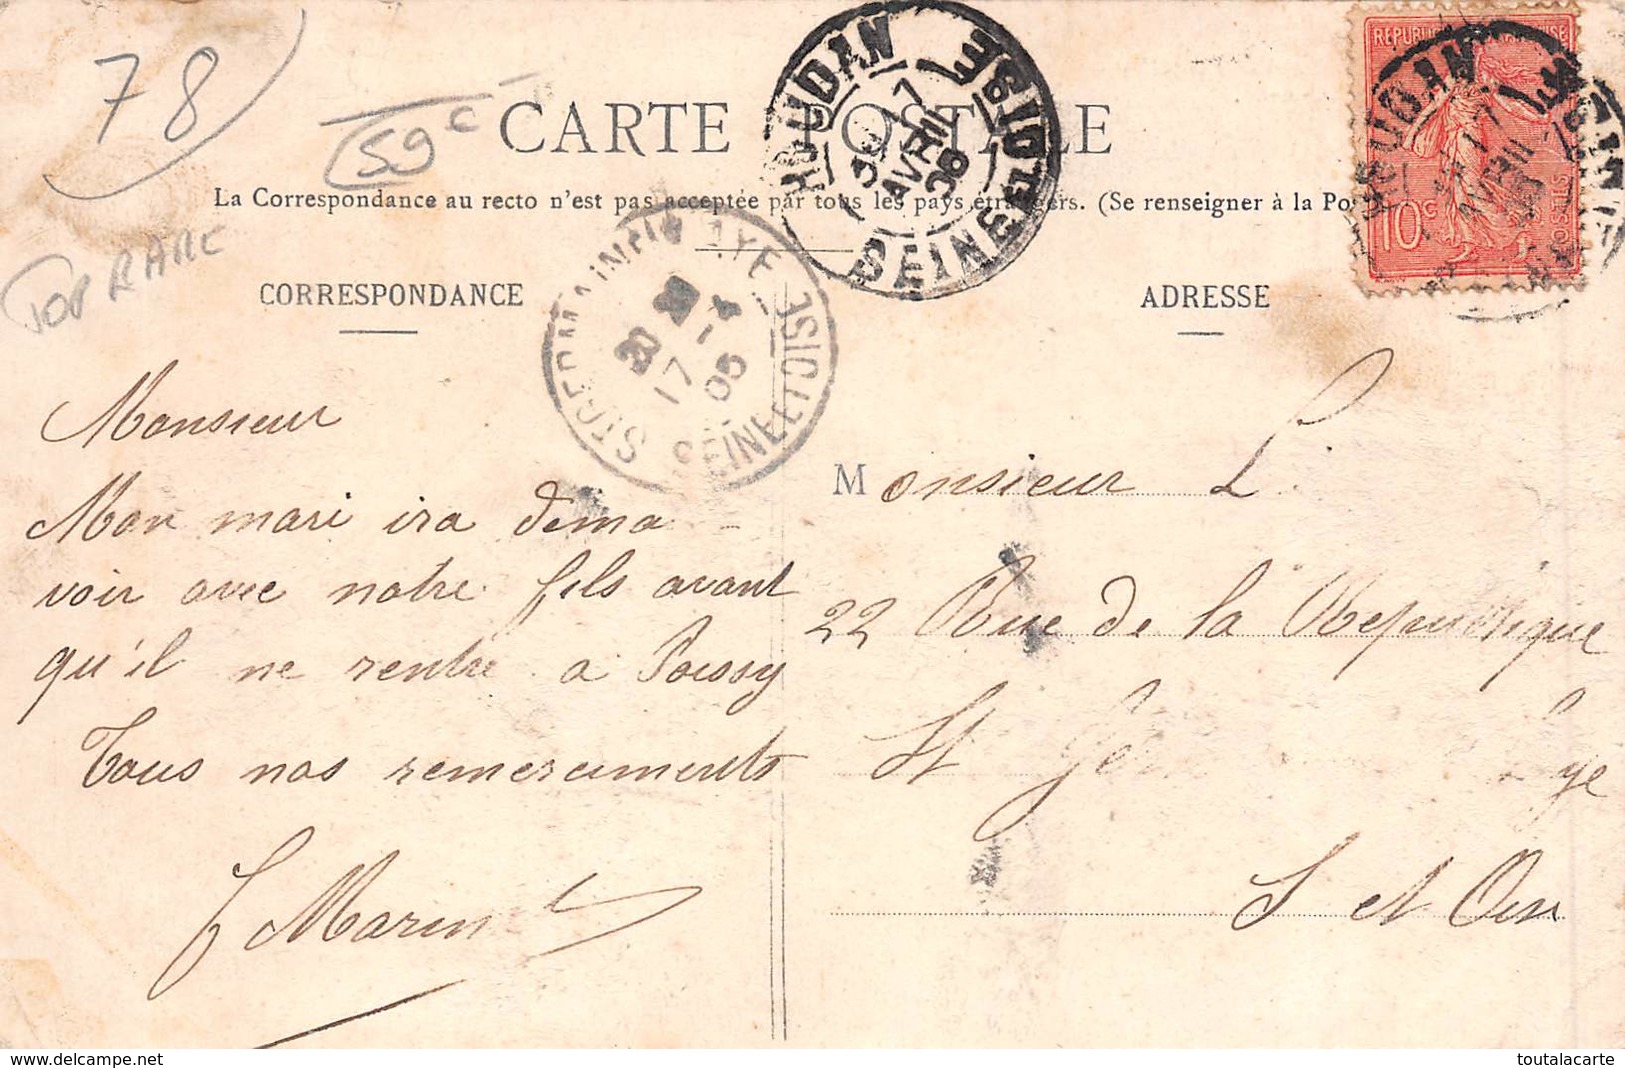 78
59 c
TOP RARE
CARTE POSTALE
La Correspondance au recto n'est pas acceptée par tous les pays étrangers. (Se renseigner à la Po
CORRESPONDANCE
ADRESSE
HOUDAN
17
AVRIL
SEINE-ET-OISE
REPUBLIQUE FRANÇAISE
10 c
POSTES
ST GERMAIN EN LAYE
20
17 - 4
05
SEINE ET OISE
Monsieur
Mon mari ira dema
voir avec notre fils avant
qu'il ne rentre a Poissy
Tous nos remerciments
Marin
Monsieur L.
22 Rue de la Republique
St Ger Laye
S et Oise
delcampe.net
toutalacarte